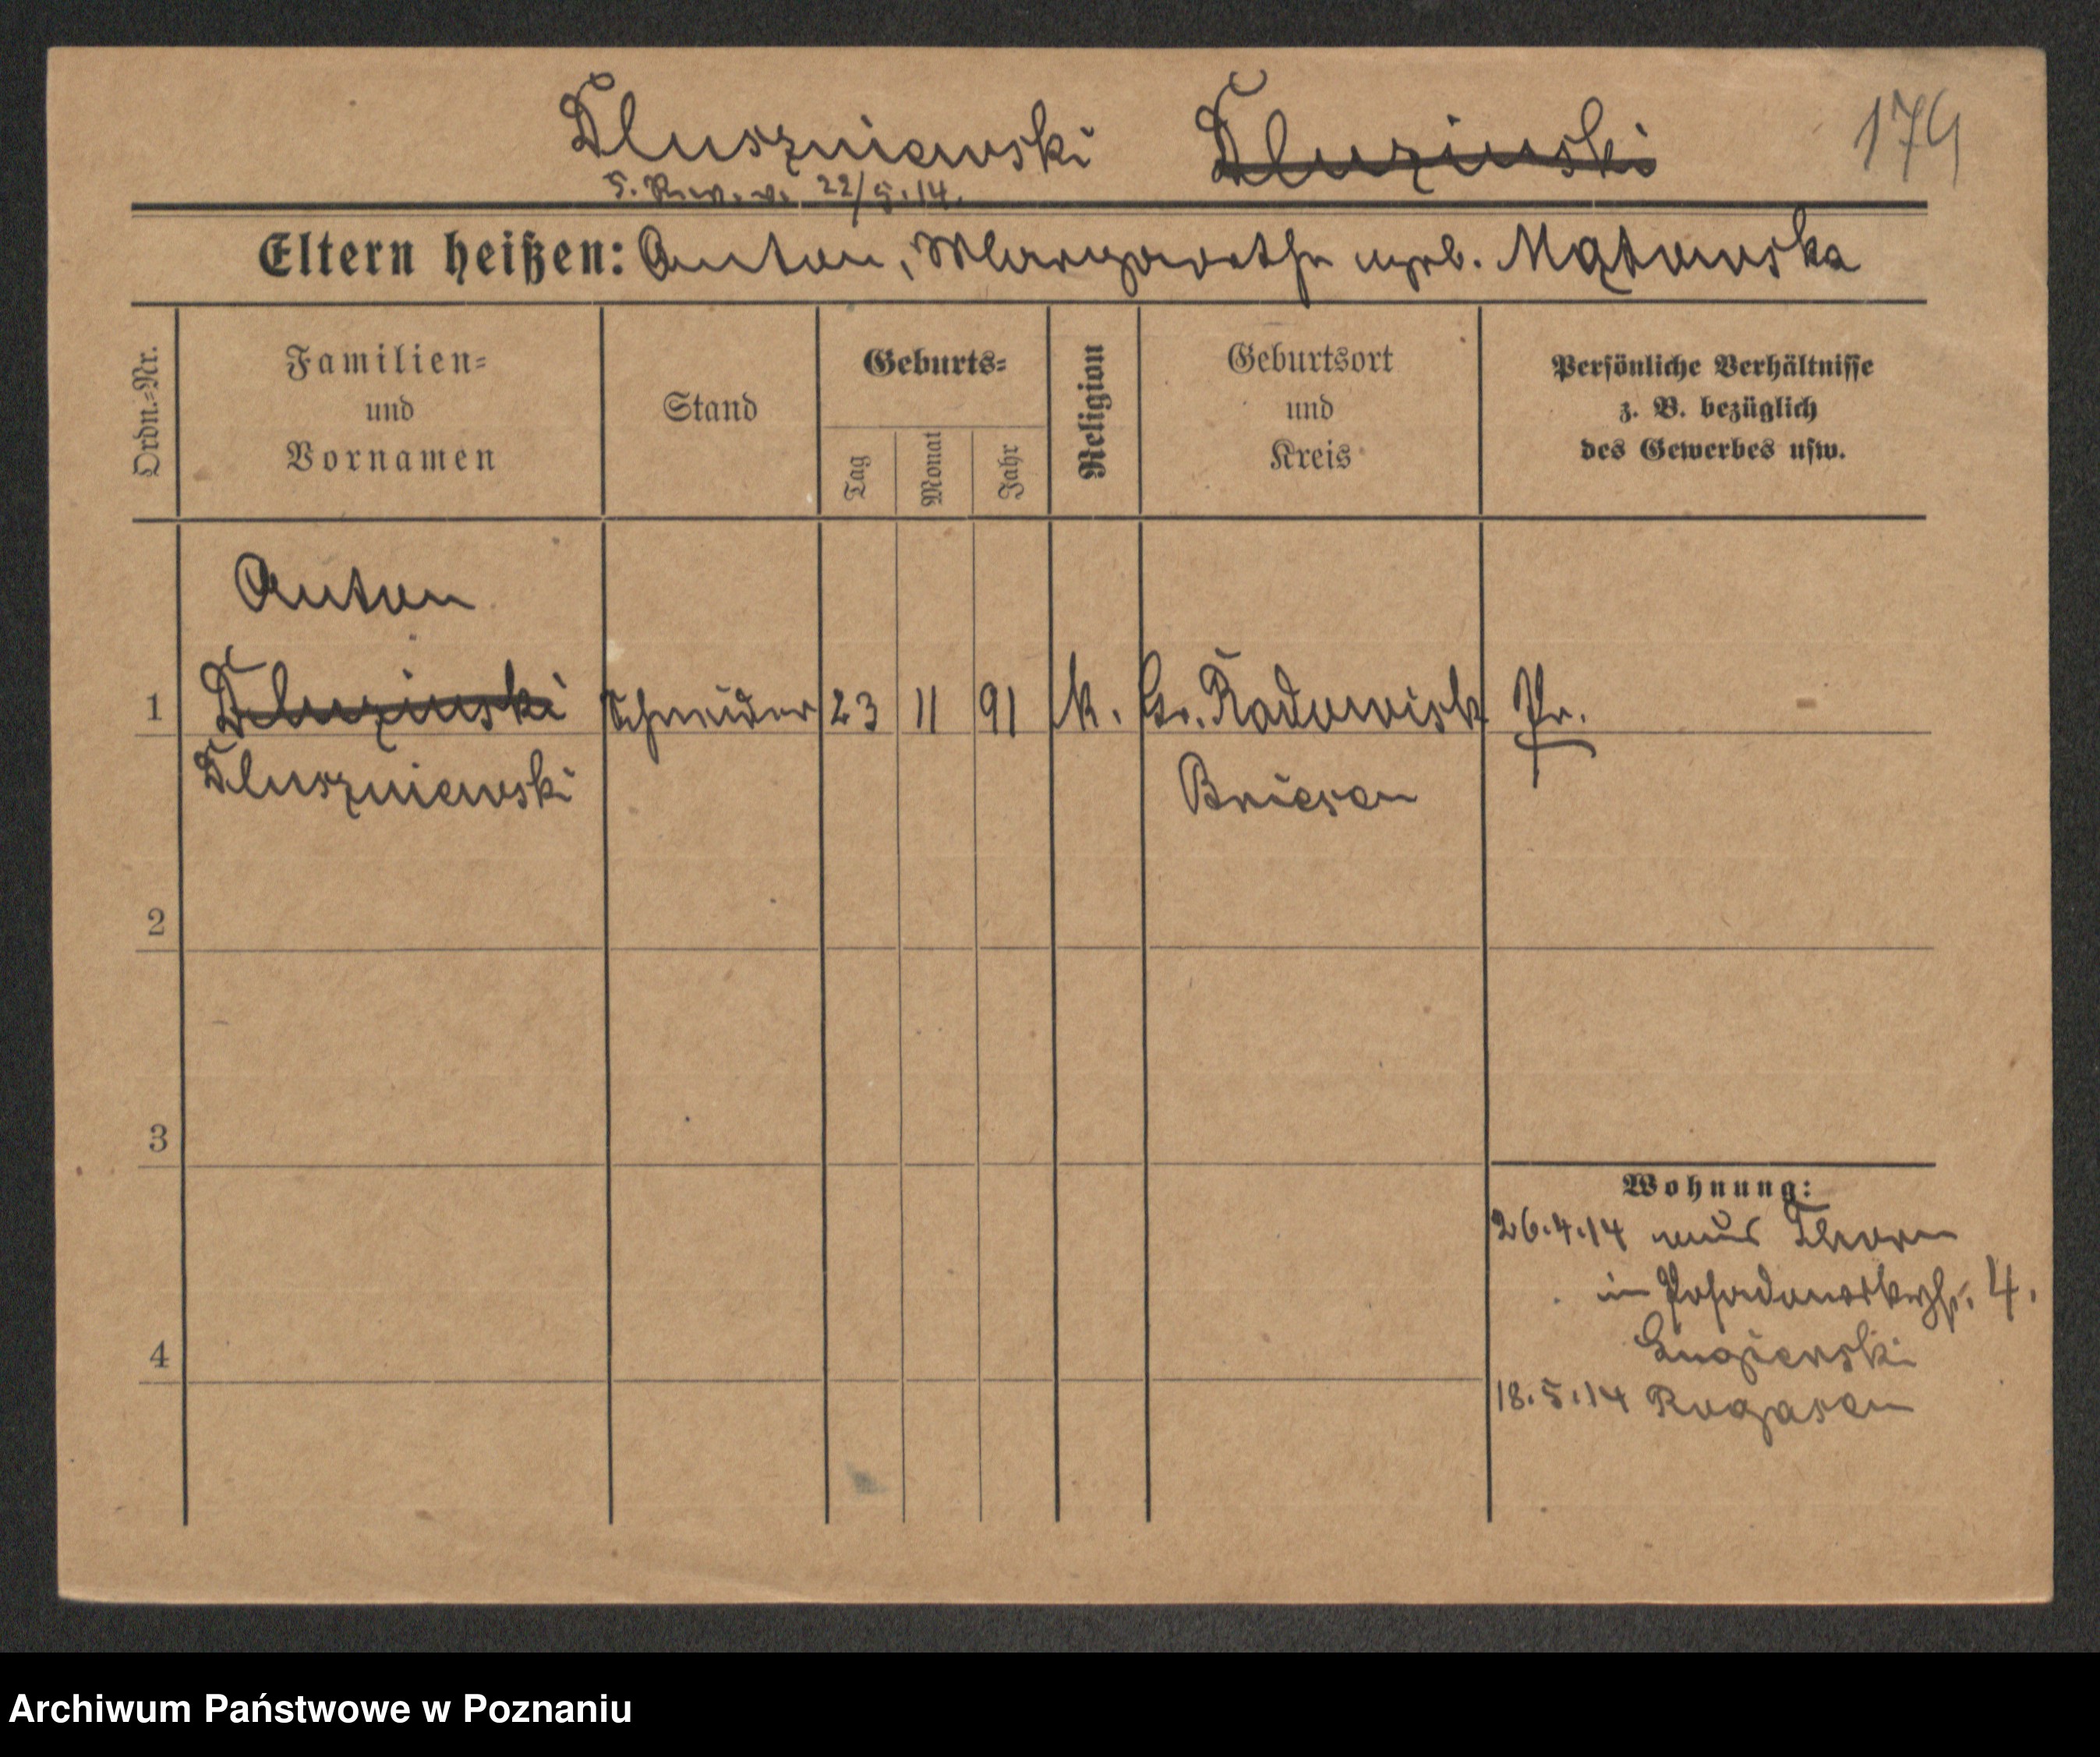 Dluszniewski Dluzinski 174
s. Rev. v. 22/5.14.
Eltern heißen: Anton, Margarethe geb. Mątowska
Ordn.=Nr.
Familien=
und
Vornamen
Stand
Geburts=
Tag
Monat
Jahr
Religion
Geburtsort
und
Kreis
Persönliche Verhältnisse
z. B. bezüglich
des Gewerbes usw.
Anton
1 Dluzinski Schneider 23 11 91 k. Gr. Radowisk Pr.
Dluszniewski Briesen
2
3
4
Wohnung:
26.4.14 aus Thorn
in Posadowskystr. 4.
18.5.14 Rogasen
Archiwum Państwowe w Poznaniu